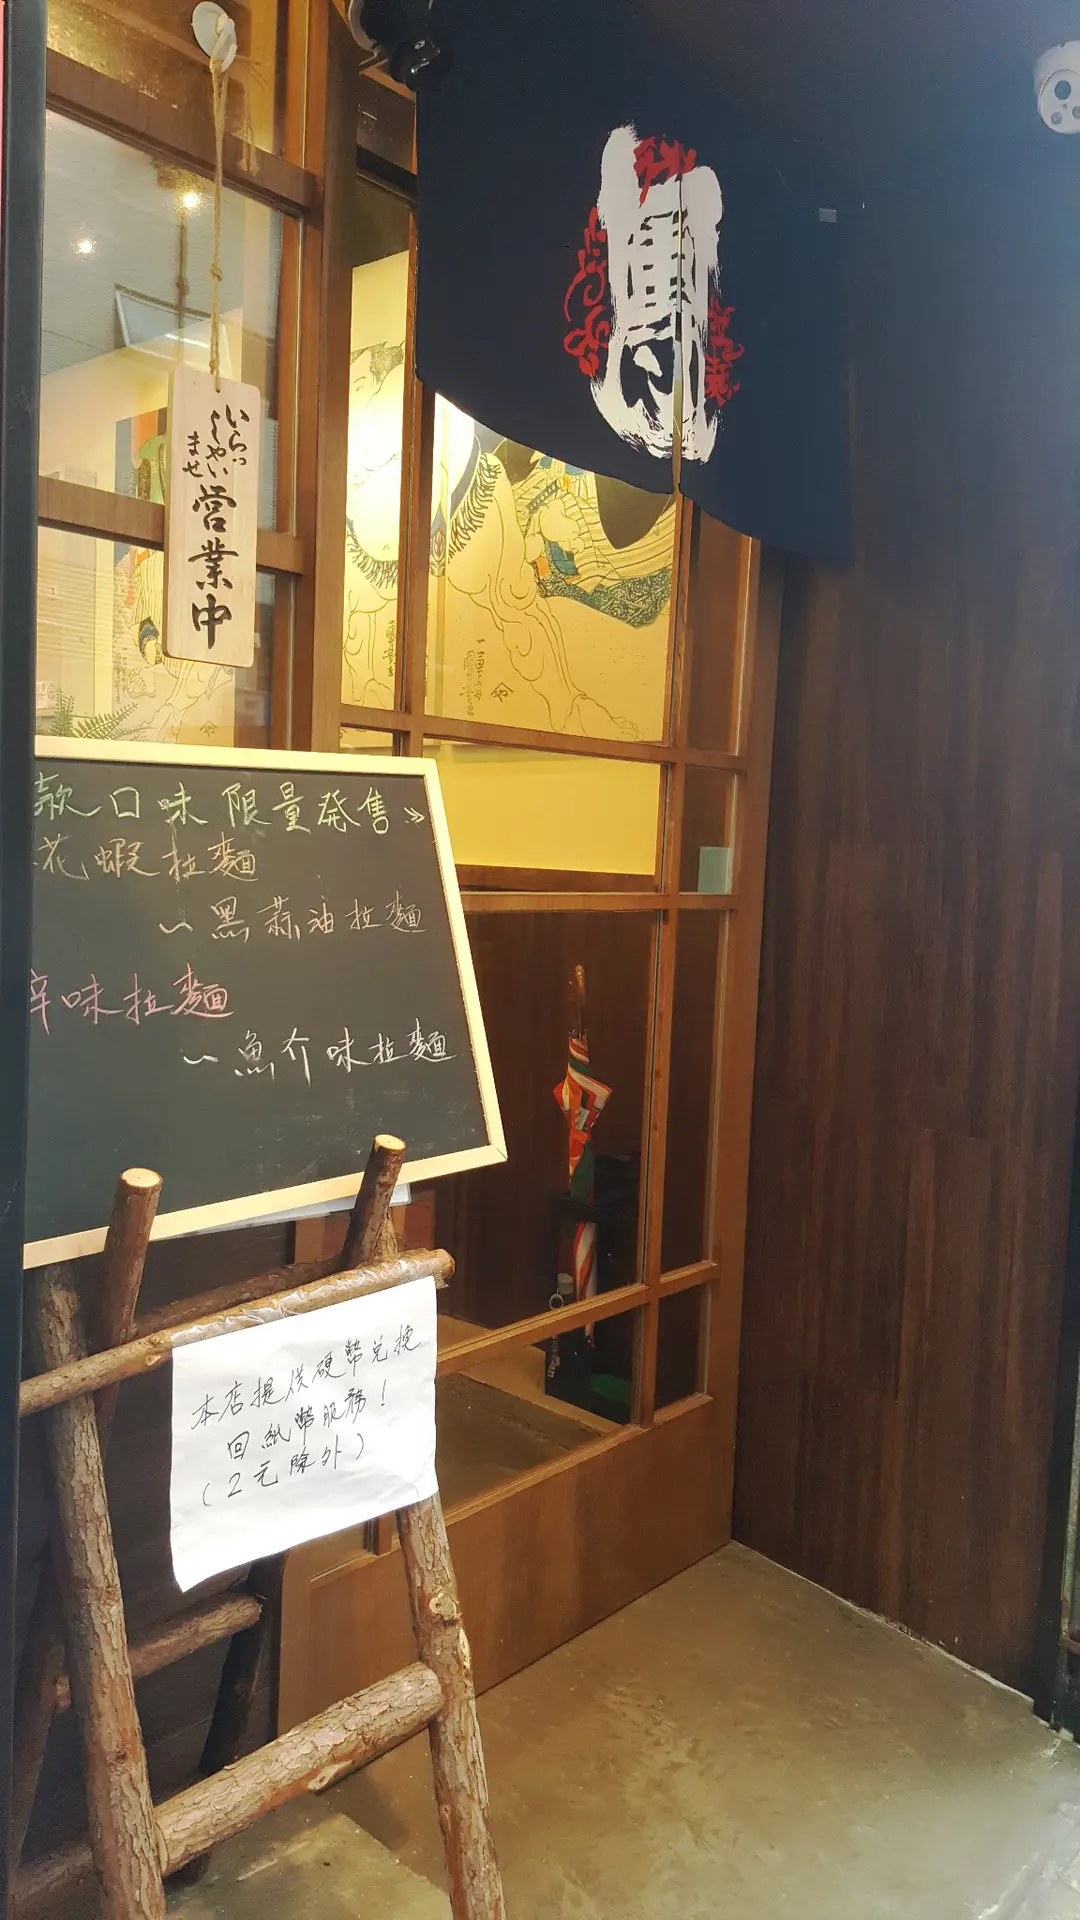 いらっ
しゃい
ませ
営業中
款口味限量発售》
花蝦拉麵
~黑蒜油拉麵
辛味拉麵
~魚介味拉麵
本店提供硬幣兌換
回紙幣服務!
(2元除外)